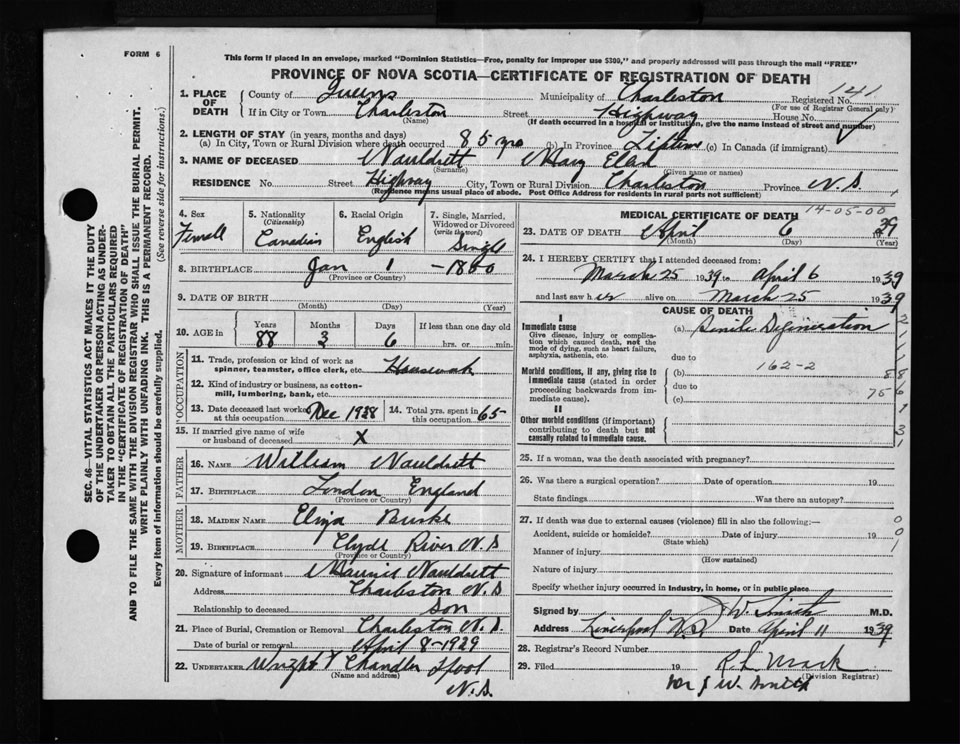 FORM 6
This form if placed in an envelope, marked "Dominion Statistics—Free, penalty for improper use $300," and properly addressed will pass through the mail "FREE"
PROVINCE OF NOVA SCOTIA—CERTIFICATE OF REGISTRATION OF DEATH
141
1. PLACE OF DEATH
County of Queens Municipality of Charleston Registered No.
(For use of Registrar General only)
If in City or Town Charleston Street Highway House No.
(Name) (If death occurred in a hospital or institution, give the name instead of street and number)
2. LENGTH OF STAY (in years, months and days)
(a) In City, Town or Rural Division where death occurred 85 yrs (b) In Province Lifetime (c) In Canada (if immigrant)
3. NAME OF DECEASED Mary
(Surname) (Given name or names)
RESIDENCE No. Street Highway City, Town or Rural Division Charleston Province N.S.
(Residence means usual place of abode. Post Office Address for residents in rural parts not sufficient)
4. Sex
5. Nationality
(Citizenship)
6. Racial Origin
7. Single, Married, Widowed or Divorced
(write the word)
Canadian English Single
8. BIRTHPLACE Jan 1 - 1850
(Province or Country)
9. DATE OF BIRTH
(Month) (Day) (Year)
10. AGE in
Years Months Days If less than one day old
88 3 6 hrs. or min.
OCCUPATION
11. Trade, profession or kind of work as spinner, teamster, office clerk, etc. Housework
12. Kind of industry or business, as cotton-mill, lumbering, bank, etc.
13. Date deceased last worked at this occupation Dec 1938 14. Total yrs. spent in this occupation 65
15. If married give name of wife or husband of deceased X
FATHER
16. NAME William
17. BIRTHPLACE London England
(Province or Country)
MOTHER
18. MAIDEN NAME Eliza Burke
19. BIRTHPLACE Clyde River N.S
(Province or Country)
20. Signature of informant
Address Charleston N.S
Relationship to deceased Son
21. Place of Burial, Cremation or Removal Charleston N.S.
Date of burial or removal April 8-1929
22. UNDERTAKER Wright Chandler L'pool
(Name and address)
N.S.
MEDICAL CERTIFICATE OF DEATH
14-05-00
23. DATE OF DEATH April 6 1939
(Month) (Day) (Year)
24. I HEREBY CERTIFY that I attended deceased from:
March 25 1939 to April 6 1939
and last saw her alive on March 25 1939
CAUSE OF DEATH
I
Immediate cause
Give disease, injury or complication which caused death, not the mode of dying, such as heart failure, asphyxia, asthenia, etc.
(a) Senile Degeneration
due to
Morbid conditions, if any, giving rise to immediate cause (stated in order proceeding backwards from immediate cause).
(b) 162-2
due to
(c)
II
Other morbid conditions (if important) contributing to death but not causally related to immediate cause.
25. If a woman, was the death associated with pregnancy?
26. Was there a surgical operation? Date of operation 19
State findings Was there an autopsy?
27. If death was due to external causes (violence) fill in also the following:—
Accident, suicide or homicide? Date of injury 19
(State which)
Manner of injury
(How sustained)
Nature of injury
Specify whether injury occurred in Industry, in home, or in public place
Signed by J W. Smith M.D.
Address Liverpool N.S Date April 11 1939
28. Registrar's Record Number
29. Filed 19
(Division Registrar)
J W. Smith
SEC. 46—VITAL STATISTICS ACT MAKES IT THE DUTY
OF THE UNDERTAKER OR PERSON ACTING AS UNDER-
TAKER TO OBTAIN ALL THE PARTICULARS REQUIRED
IN THE "CERTIFICATE OF REGISTRATION OF DEATH"
AND TO FILE THE SAME WITH THE DIVISION REGISTRAR WHO SHALL ISSUE THE BURIAL PERMIT.
WRITE PLAINLY WITH UNFADING INK. THIS IS A PERMANENT RECORD.
Every item of information should be carefully supplied.
(See reverse side for instructions.)